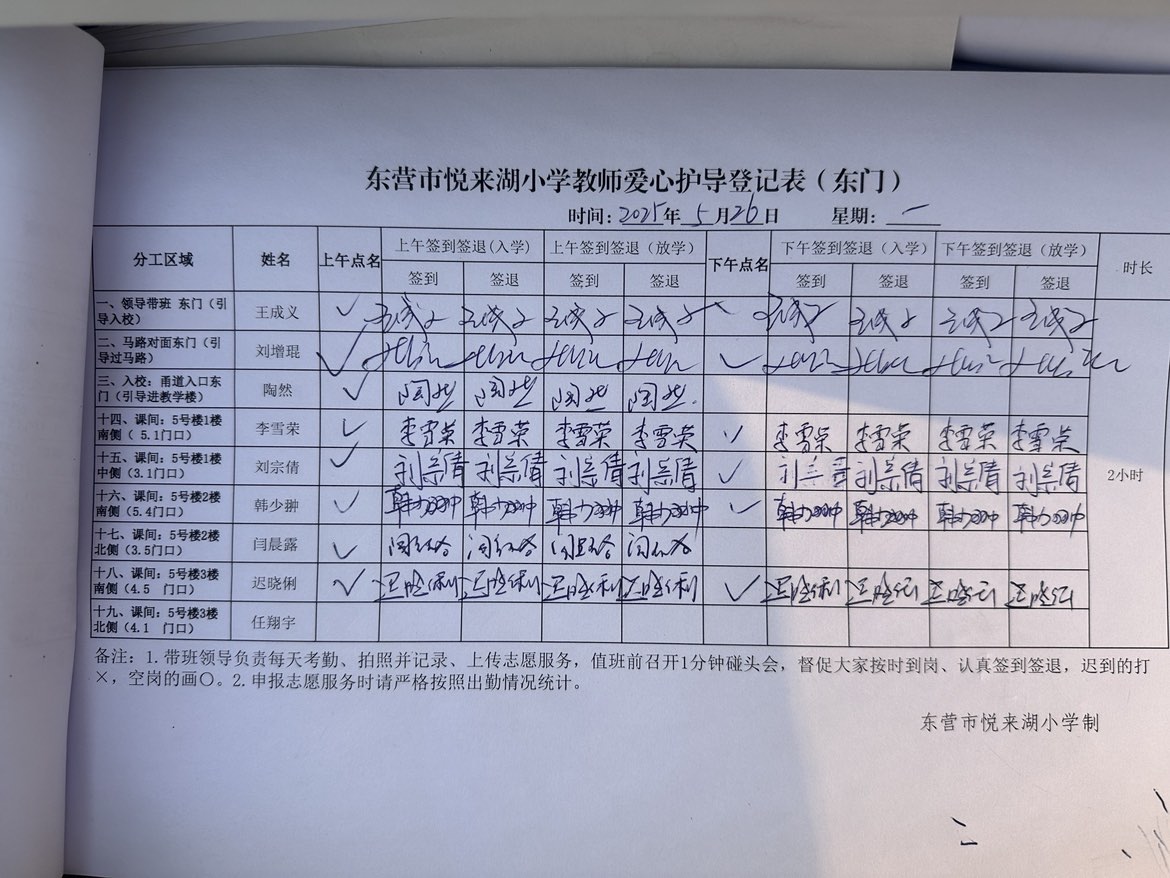 东营市悦来湖小学教师爱心护导登记表（东门）
时间：2025年 5月26日 星期：一
分工区域 姓名 上午点名 上午签到签退(入学) 上午签到签退（放学） 下午点名 下午签到签退（入学） 下午签到签退（放学） 时长
签到 签退 签到 签退 签到 签退 签到 签退
一、领导带班 东门（引
导入校） 王成义 ✓
二、马路对面东门（引
导过马路） 刘增琨 ✓ ✓
三、入校：甬道入口东
门（引导进教学楼） 陶然 ✓ 陶然 陶然 陶然 陶然
十四、课间：5号楼1楼
南侧（ 5.1门口） 李雪荣 ✓ 李雪荣 李雪荣 李雪荣 李雪荣 ✓ 李雪荣 李雪荣 李雪荣 李雪荣
十五、课间：5号楼1楼
中侧（3.1门口） 刘宗倩 ✓ 刘宗倩 刘宗倩 刘宗倩 刘宗倩 ✓ 刘宗倩 刘宗倩 刘宗倩 刘宗倩
十六、课间：5号楼2楼
南侧（5.4门口） 韩少翀 ✓ 韩少翀 韩少翀 韩少翀 韩少翀 ✓ 韩少翀 韩少翀 韩少翀 韩少翀
十七、课间：5号楼2楼
北侧（3.5门口） 闫晨露 ✓
十八、课间：5号楼3楼
南侧（4.5 门口） 迟晓俐 ✓ ✓
十九、课间：5号楼3楼
北侧（4.1 门口） 任翔宇
2小时
备注：1.带班领导负责每天考勤、拍照并记录、上传志愿服务，值班前召开1分钟碰头会，督促大家按时到岗、认真签到签退，迟到的打
×，空岗的画〇。2.申报志愿服务时请严格按照出勤情况统计。
东营市悦来湖小学制